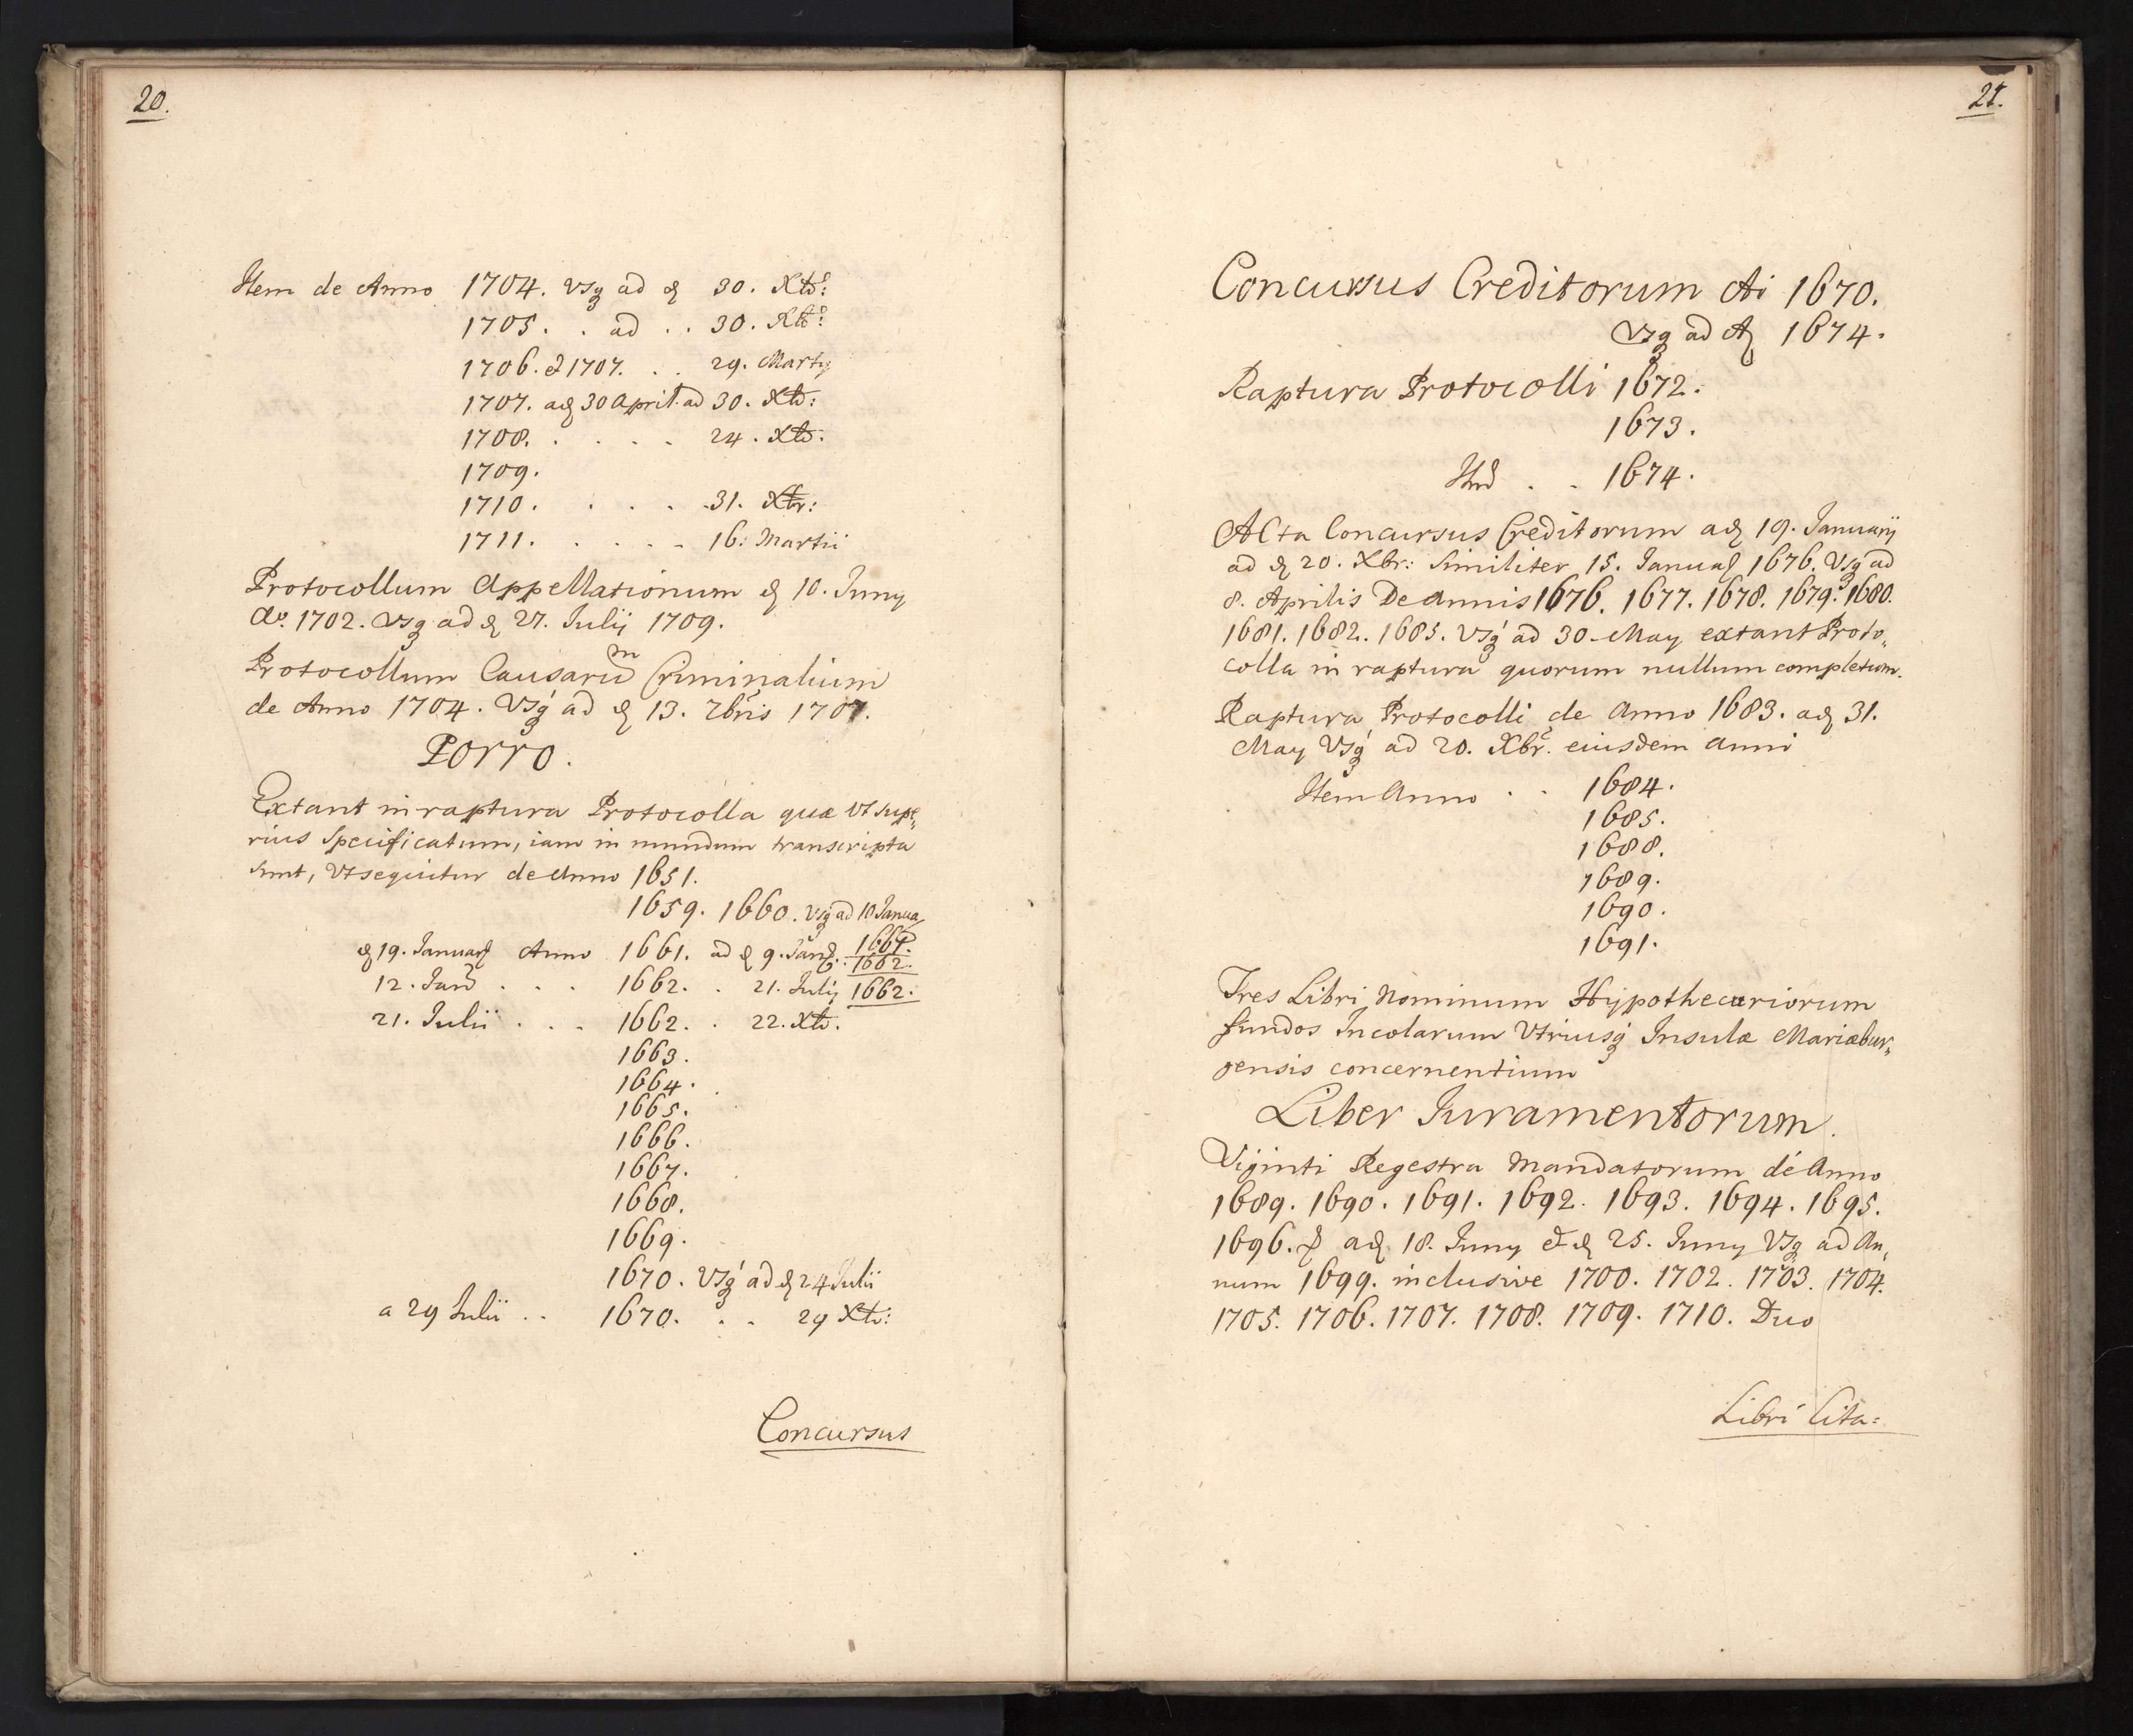 20.
Item de Anno 1704. Usq ad d 30. Xbr:
1705. . ad . . 30. Xbr:
1706. et 1707. . . 29. Martij
1707. a d 30 April. ad 30. Xbr:
1708. . . . . 24. Xbr:
1709.
1710. . . . . 31. Xbr:
1711. . . . . 16: Martii
Protocollum Appellationum d 10. Juny
Ao. 1702. Usq ad d 27. Julij 1709.
Protocollum Causarum Criminalium
de Anno 1704. Usq ad d 13. 7bris 1707.
Porro.
Extant in raptura Protocolla quæ Ut supe„
rius Specificatum, iam in mundum transcripta
sunt, Ut sequitur de Anno 1651.
1659. 1660. Usq ad 10 Janua
d 19. Januar Anno 1661. ad d 9. Jan. 1661.
1662.
12. Jan . . . 1662. . 21. Julij 1662.
21. Julii . . . 1662. . 22. Xbr.
1663.
1664.
1665.
1666.
1667.
1668.
1669.
1670. Usq ad d 24 Julii
a 29 Julii . . 1670. . . 29 Xbr:
Concursus
21.
Concursus Creditorum Ai 1670.
Usq ad A 1674.
Raptura Protocolli 1672.
1673.
Itm . . 1674.
Acta Concursus Creditorum a d 19. Januarij
ad d 20. Xbr: Similiter 15. Januar 1676. Usq ad
8. Aprilis De Annis 1676. 1677. 1678. 1679. 1680.
1681. 1682. 1683. Usq ad 30 May extant Proto„
colla in raptura quorum nullum completum.
Raptura Protocolli de Anno 1683. a d 31.
May Usq ad 20. Xbr. eiusdem anni
Item Anno . . 1684.
1685.
1688.
1689.
1690.
1691.
Tres Libri Nominum Hypothecariorum
fundos Incolarum Utriusq Insulæ Mariæbur„
gensis concernentium
Liber Juramentorum.
Viginti Regestra Mandatorum de Anno
1689. 1690. 1691. 1692. 1693. 1694. 1695.
1696. a d 18. Juny et d 25. Juny Usq ad An„
num 1699. inclusive 1700. 1702. 1703. 1704.
1705. 1706. 1707. 1708. 1709. 1710. Duo
Libri Cita=